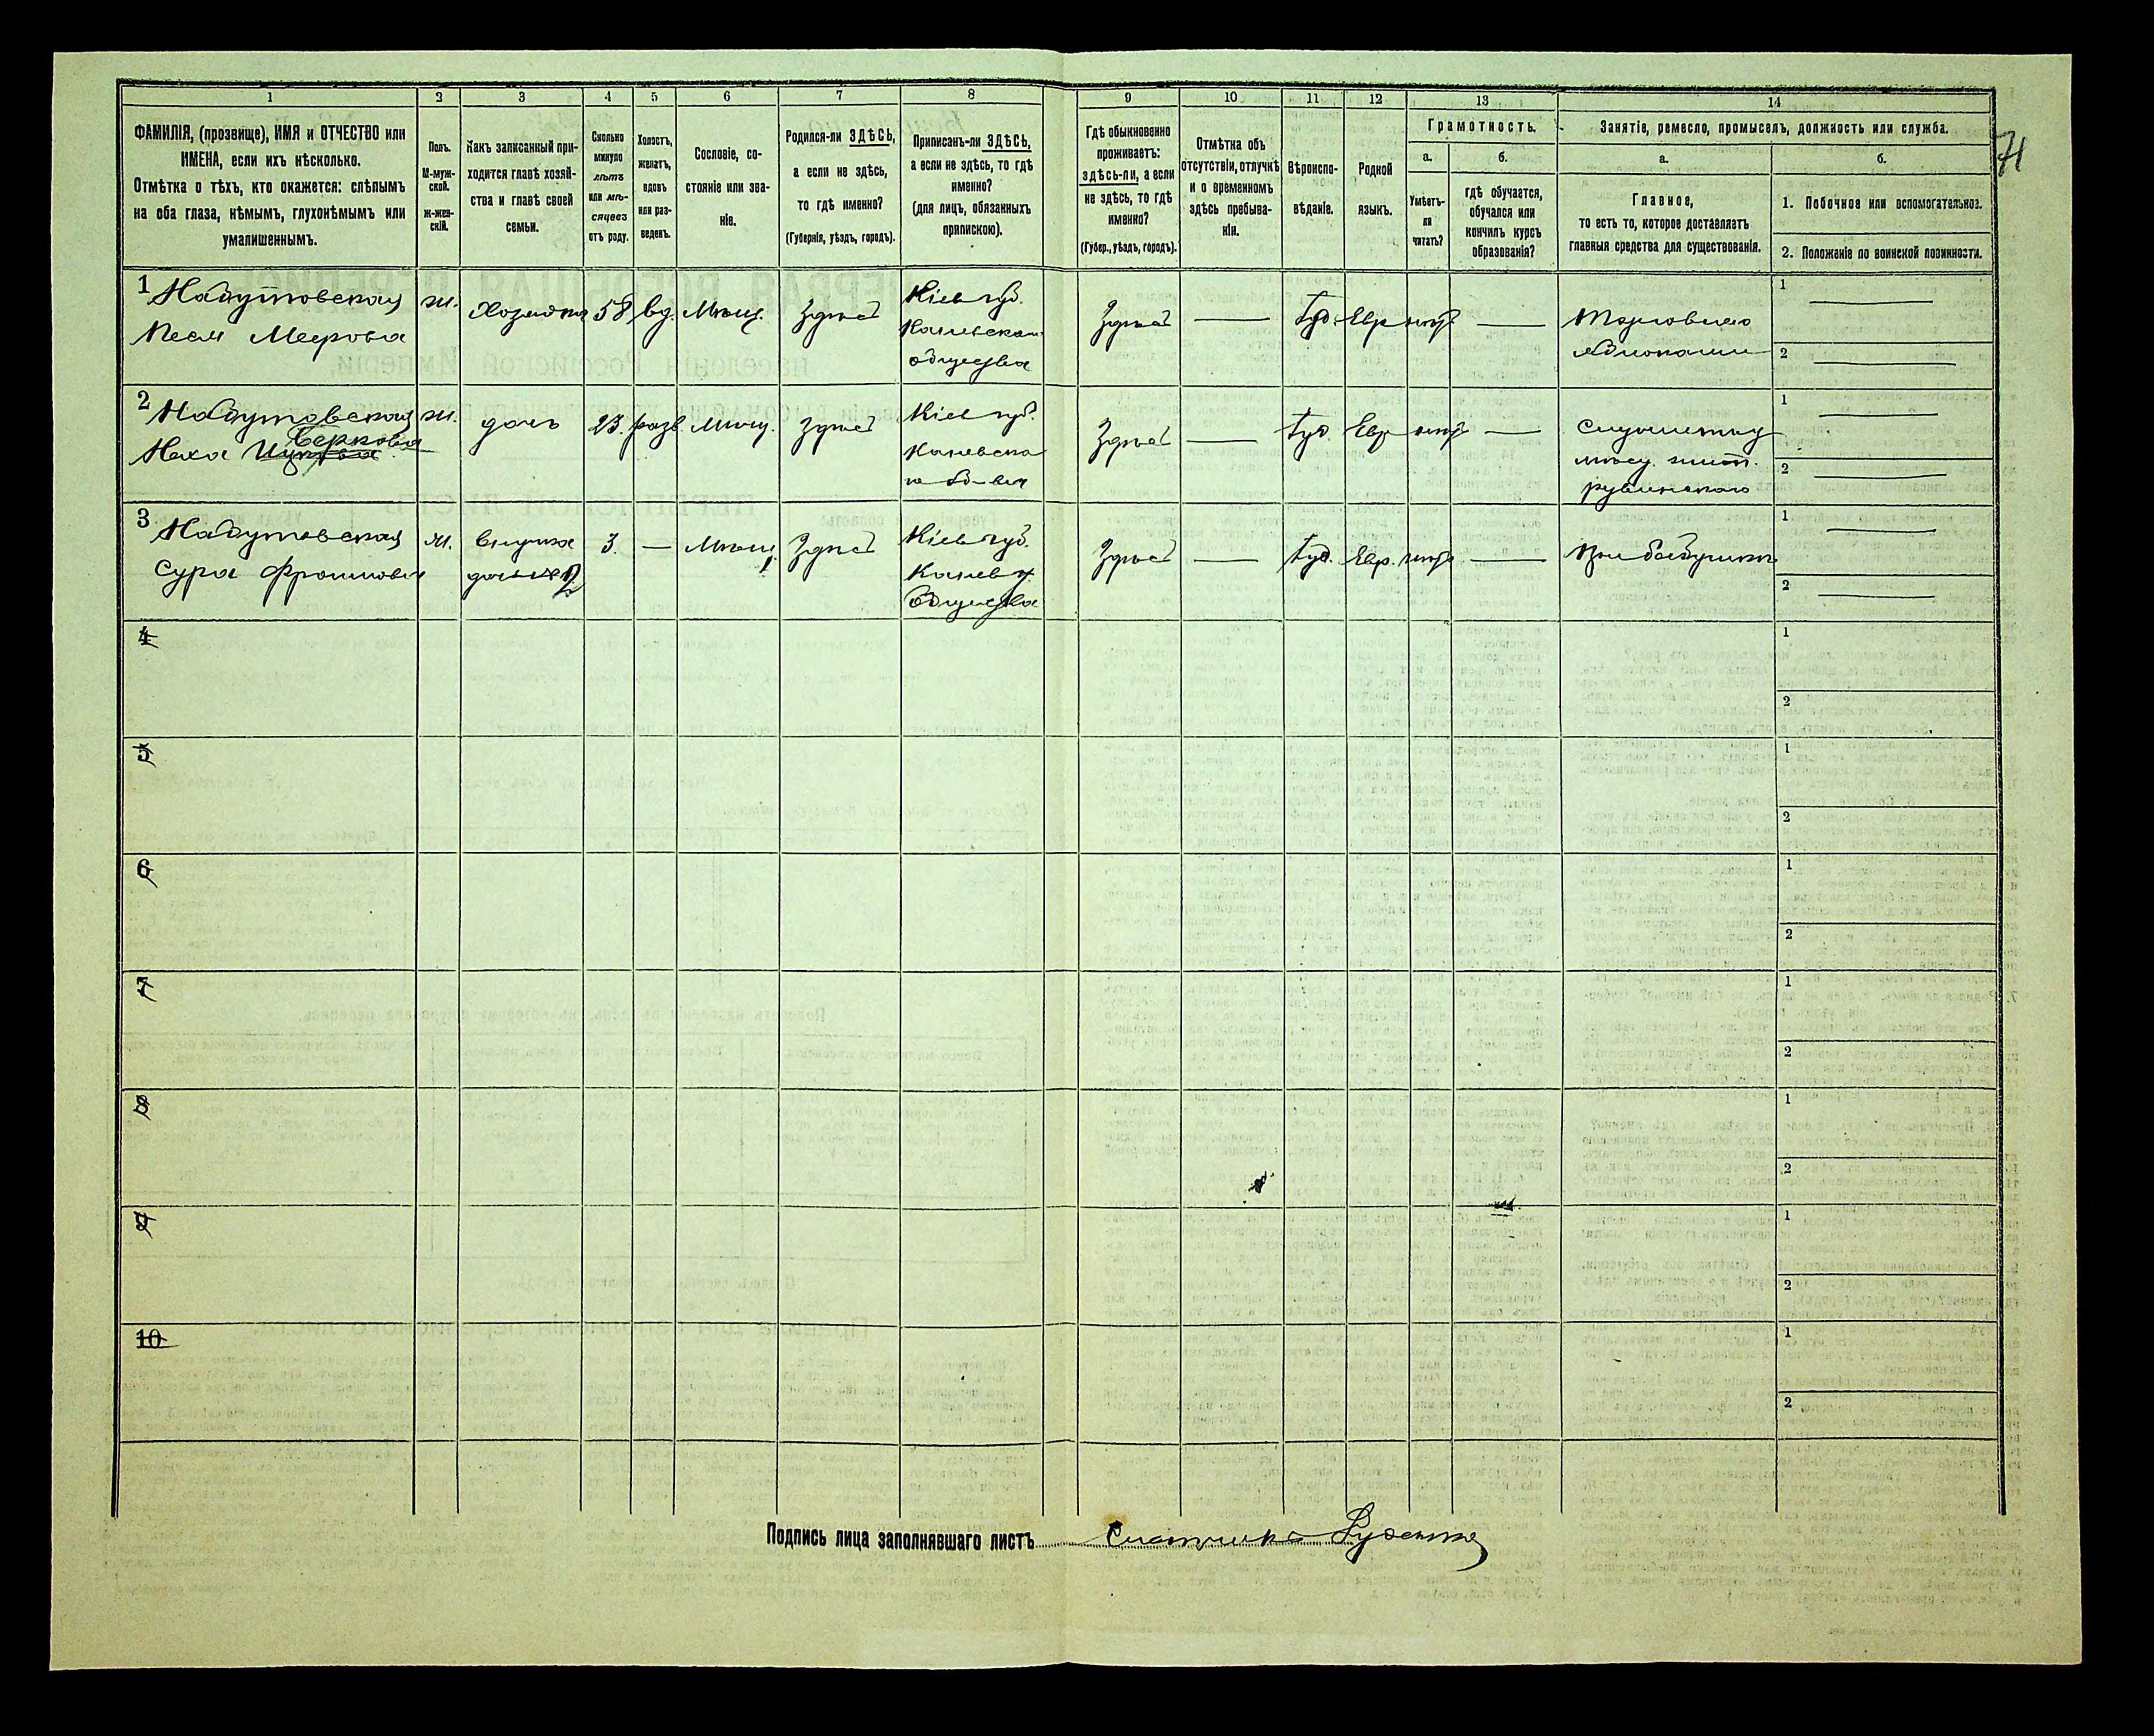 1 2 3 4 5 6 7 8 9 10 11 12 13 14
71
ФАМИЛІЯ, (прозвище), ИМЯ и ОТЧЕСТВО или
ИМЕНА, если ихъ нѣсколько.
Отмѣтка о тѣхъ, кто окажется: слѣпымъ
на оба глаза, нѣмымъ, глухонѣмымъ или
умалишеннымъ.
Полъ.
М-муж-
ской.
Ж-жен-
скій.
Какъ записанный при-
ходится главѣ хозяй-
ства и главѣ своей
семьи.
Сколько
минуло
лѣтъ
или мѣ-
сяцевъ
отъ роду.
Холостъ,
женатъ,
вдовъ
или раз-
веденъ.
Сословіе, со-
стояніе или зва-
ніе.
Родился-ли ЗДѢСЬ,
а если не здѣсь,
то гдѣ именно?
(Губернія, уѣздъ, городъ).
Приписанъ-ли ЗДѢСЬ,
а если не здѣсь, то гдѣ
именно?
(для лицъ, обязанныхъ
припискою).
Гдѣ обыкновенно
проживаетъ:
здѣсь-ли, а если
не здѣсь, то гдѣ
именно?
(Губер., уѣздъ, городъ).
Отмѣтка объ
отсутствіи, отлучкѣ
и о временномъ
здѣсь пребыва-
ніи.
Вѣроиспо-
вѣданіе.
Родной
языкъ.
Грамотность.
а.
Умѣетъ-
ли
читать?
б.
гдѣ обучается,
обучался или
кончилъ курсъ
образованія?
Занятіе, ремесло, промыселъ, должность или служба.
а.
Главное,
то есть то, которое доставляетъ
главныя средства для существованія.
б.
1. Побочное или вспомогательное.
2. Положеніе по воинской повинности.
1
Песя Меерова
ж.
Хозяйка
58
вд.
Мѣщ.
Здѣсь
Кіев губ.
Каневскаго
общества
Здѣсь
—
Іуд.
Евр
нѣтъ
—
Торговля
яблоками
1 —
2 —
2
Берковна
ж.
дочь
23.
разв
Мѣщ.
Здѣсь
Кіев губ.
Каневска
го об-ва
Здѣсь
—
Іуд.
Евр
нѣтъ
—
1 —
2 —
3
Сура
ж.
внучка
3.
—
Мѣщ.
Здѣсь
Кіев губ.
Канев.
Общества
Здѣсь
—
Іуд.
Евр.
нѣтъ
—
при бабушкѣ
1 —
2 —
4
1
2
5
1
2
6
1
2
7
1
2
8
1
2
9
1
2
10
1
2
Подпись лица заполнявшаго листъ